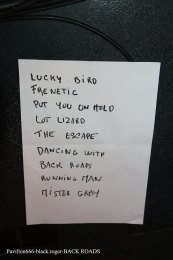 LUCKY BIRD
FRENETIC
PUT YOU ON HOLD
LOT LIZARD
THE ESCAPE
DANCING WITH
BACK ROADS
RUNNING MAN
MISTER GARY
Pavillon666-black.roger-BACK ROADS